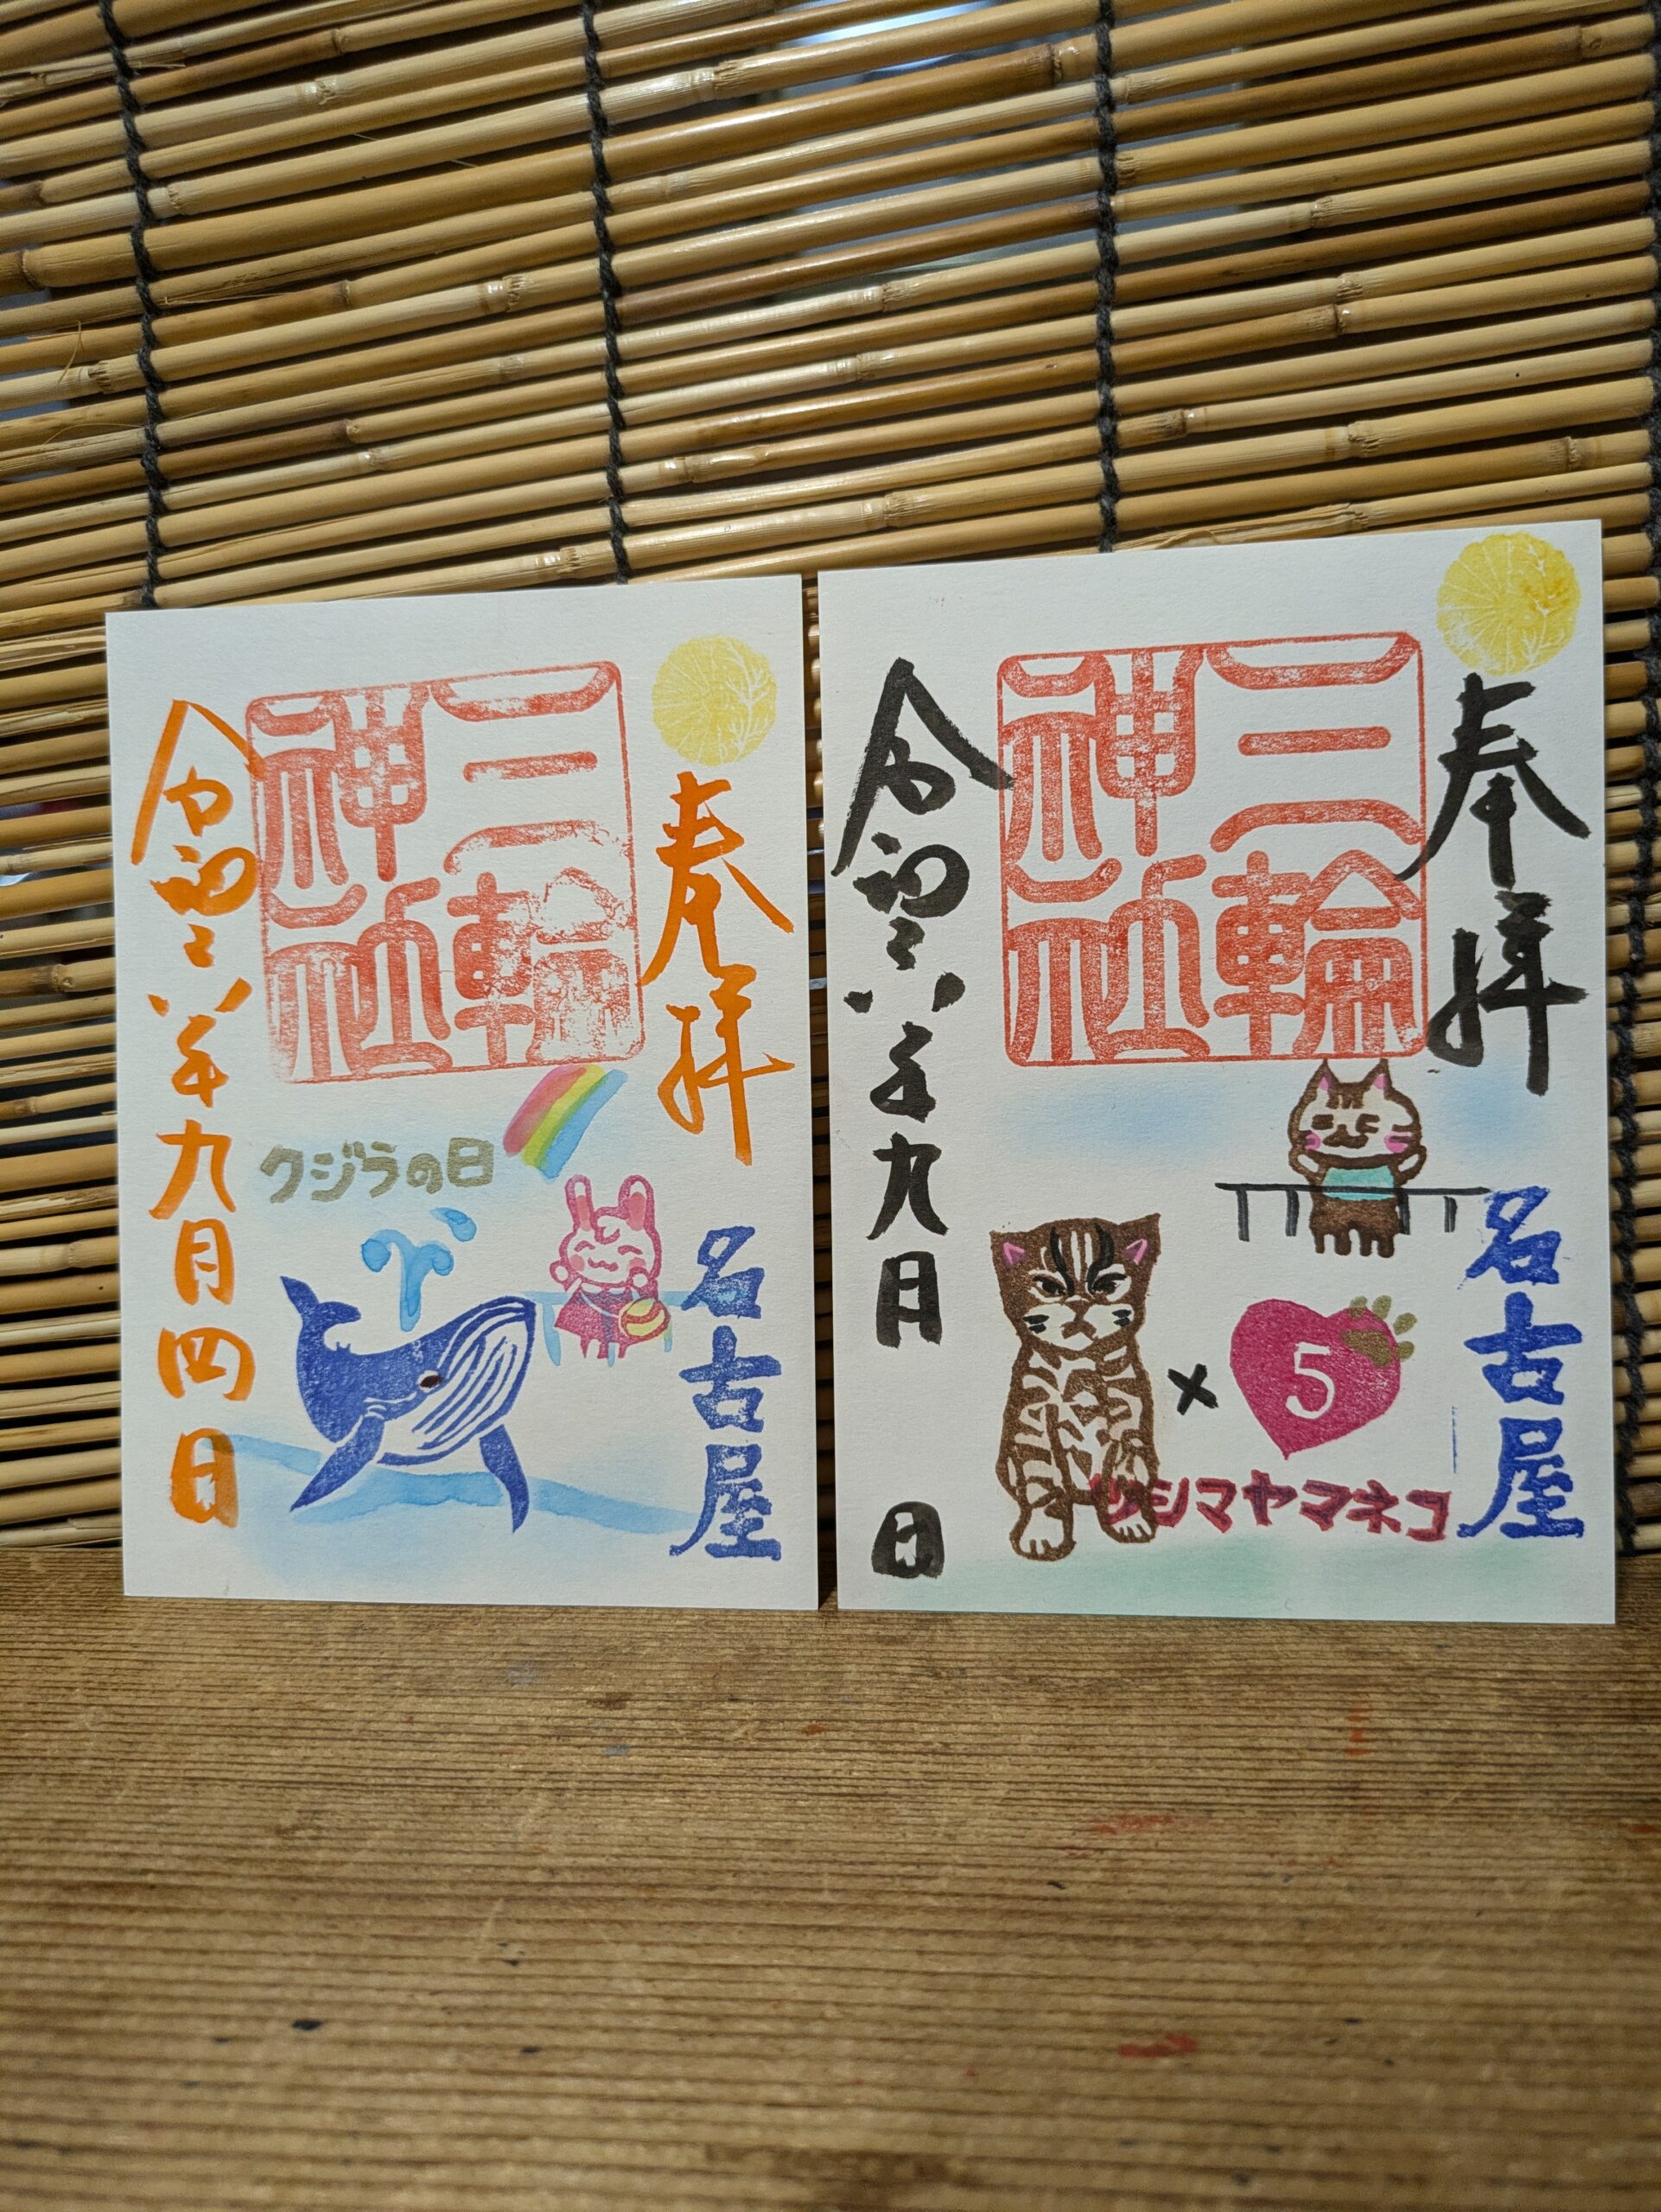 奉拝
三輪神社
クジラの日
名古屋
令和六年九月四日
奉拝
三輪神社
×
5
ツシマヤマネコ
名古屋
令和六年九月 日